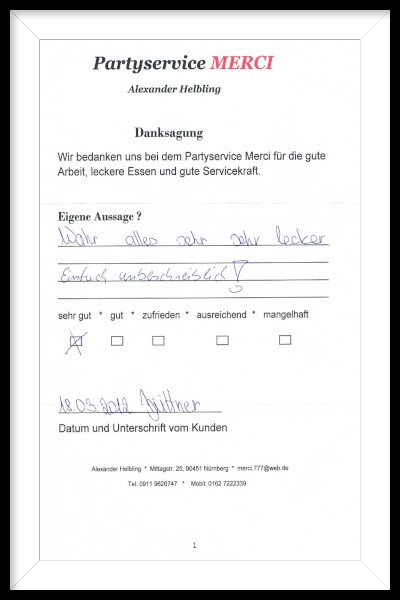 Partyservice MERCI
Alexander Helbling
Danksagung
Wir bedanken uns bei dem Partyservice Merci für die gute
Arbeit, leckere Essen und gute Servicekraft.
Eigene Aussage ?
Wahr alles sehr sehr lecker
Einfach unbeschreiblich !
sehr gut * gut * zufrieden * ausreichend * mangelhaft
18.03.2012 Jüttner
Datum und Unterschrift vom Kunden
Alexander Helbling * Mittagstr. 25, 90451 Nürnberg * merci.777@web.de
Tel: 0911 9626747 * Mobil: 0162 7222339
1